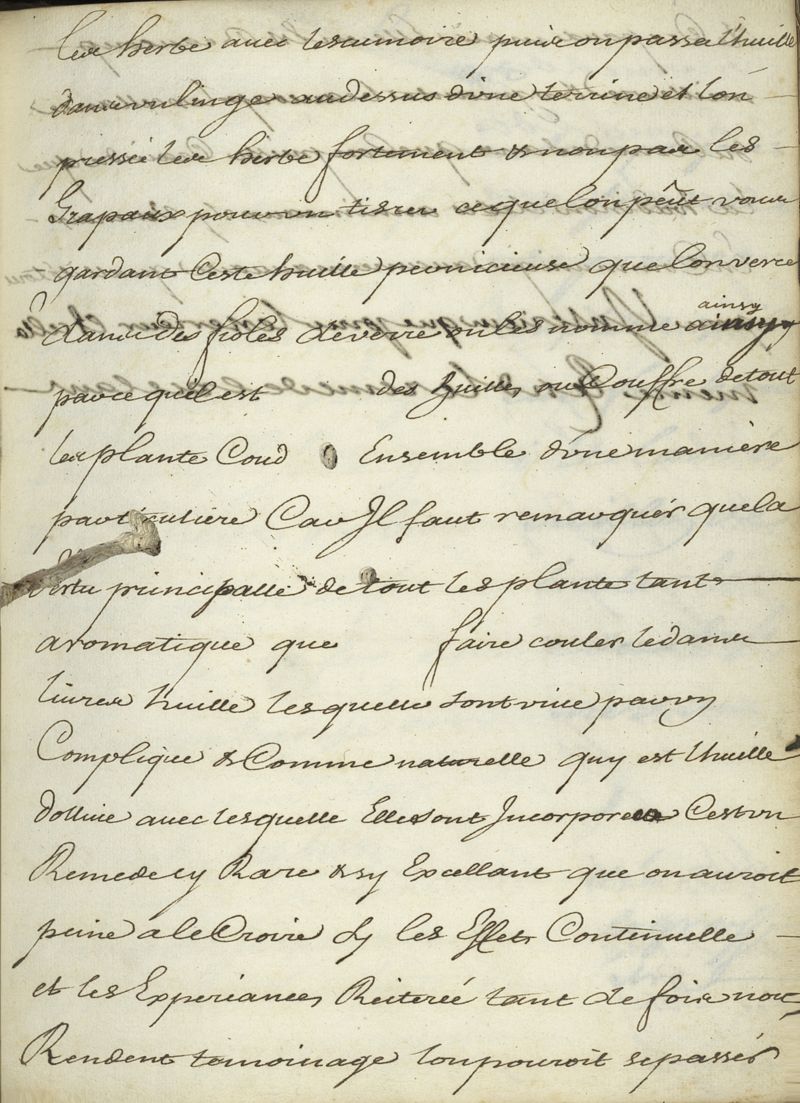 les herbe avec lescumoire puis on passe l'huille
dans un linge au dessus dune terrine et lon
pressé les herbe fortement & non pas les
Crapaux pour en tirer ce que lon peut vous
gardant Ceste huille pernicieuse que lon verce
dans des fioles de verre on les nomme ainsy
ainsy
parce quil est des huilles ou Souffre de tout
les plante Coud Ensemble dune manière
particuliere Car Il faut remarquér que la
vertu principalle de tout les plante tant
aromatique que faire couler le dans
huille lesquelle sont vive par
Complique & Comme naturelle quy est lhuille
dollive avec lesquelle Elle sont Incorporée Cest un
Remede sy Rare & sy Excellant que on auroit
peine a le Croire sy les Effets Continuelle
et les Experiances Reiterée tant de fois nous
Rendent temoinage lon pouroit sepassér